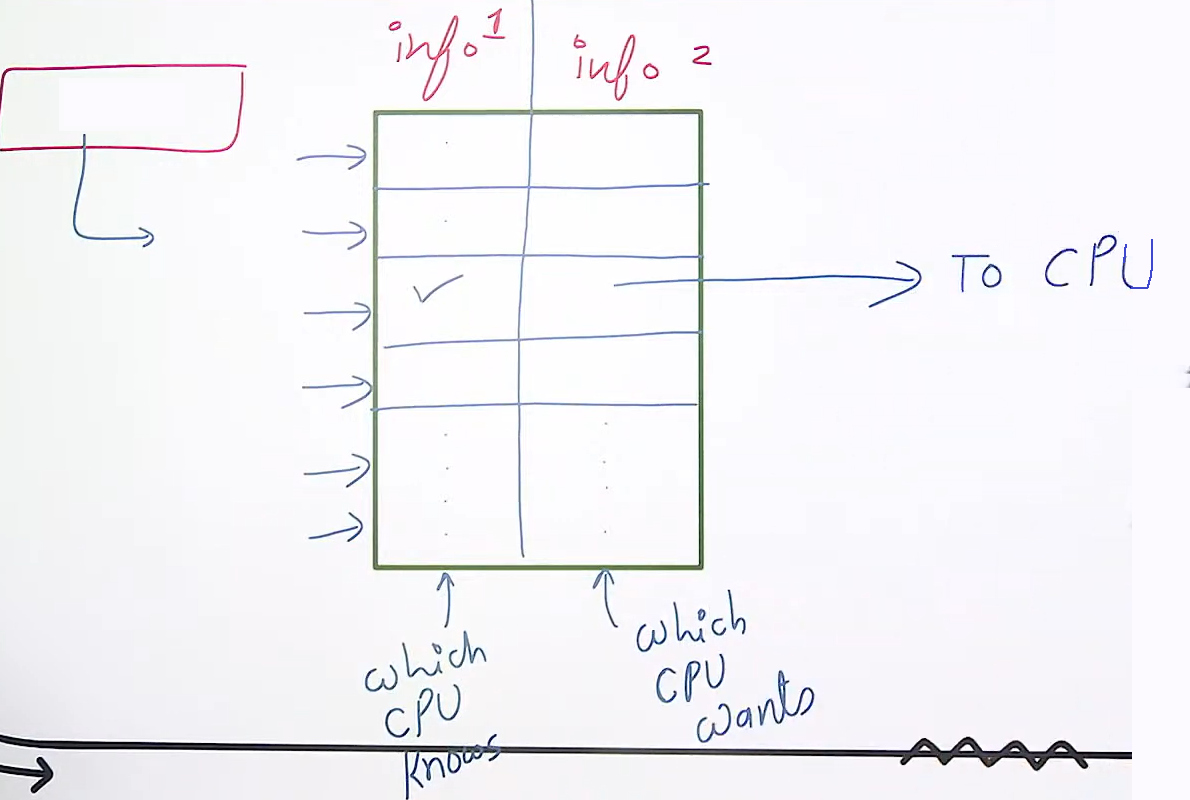 info 1
info 2
TO CPU
which
CPU
knows
which
CPU
wants